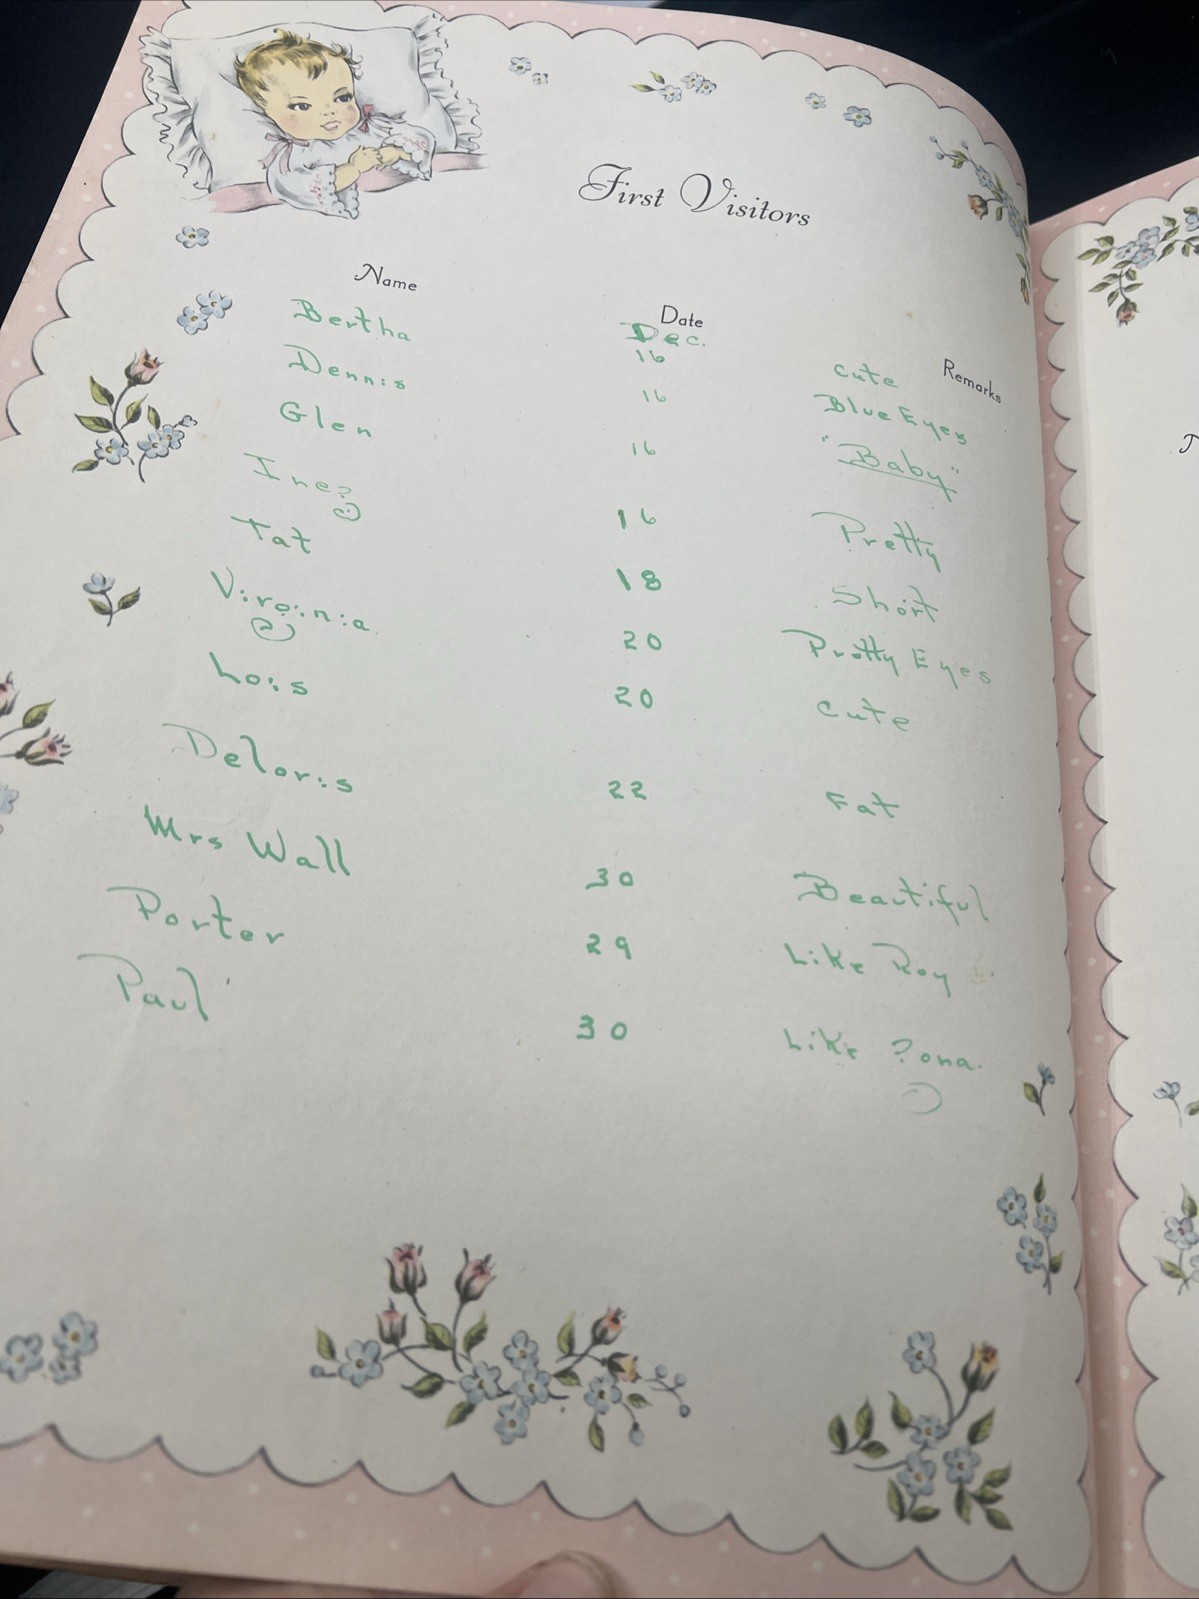 First Visitors
Name Date Remarks
Bertha Dec. 16 cute
Dennis 16 Blue Eyes
Glen 16 "Baby"
Inez 16 Pretty
Tat 18 Short
Virginia 20 Pretty Eyes
Lois 20 cute
Deloris 22 Fat
Mrs Wall 30 Beautiful
Porter 29 Like Roy
Paul 30 Like ?ona.